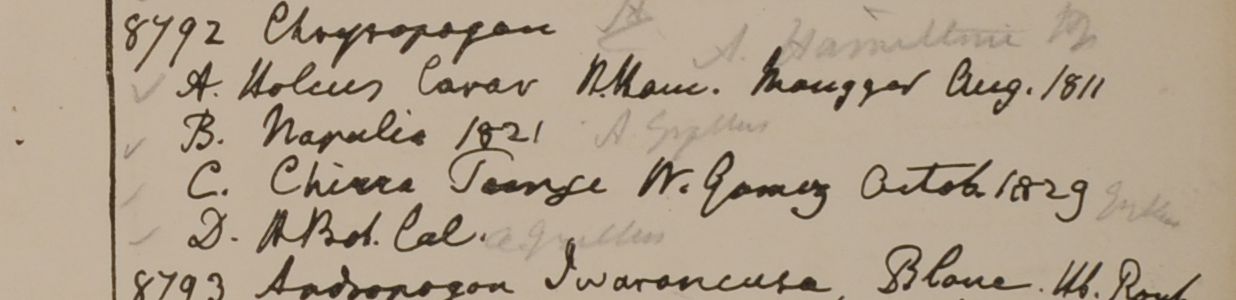 8792 Chrysopogon A. Hamiltonii
A. Holcus Cavar H. Ham. Mongger Aug. 1811
B. Napalia 1821 A. Gryllus
C. Chirra Toonge W. Gomez Octob. 1829 Gryllus
D. H. Bot. Cal. A. Gryllus
8793 Andropogon Iwarancusa, Blanc. Hb. Roxb